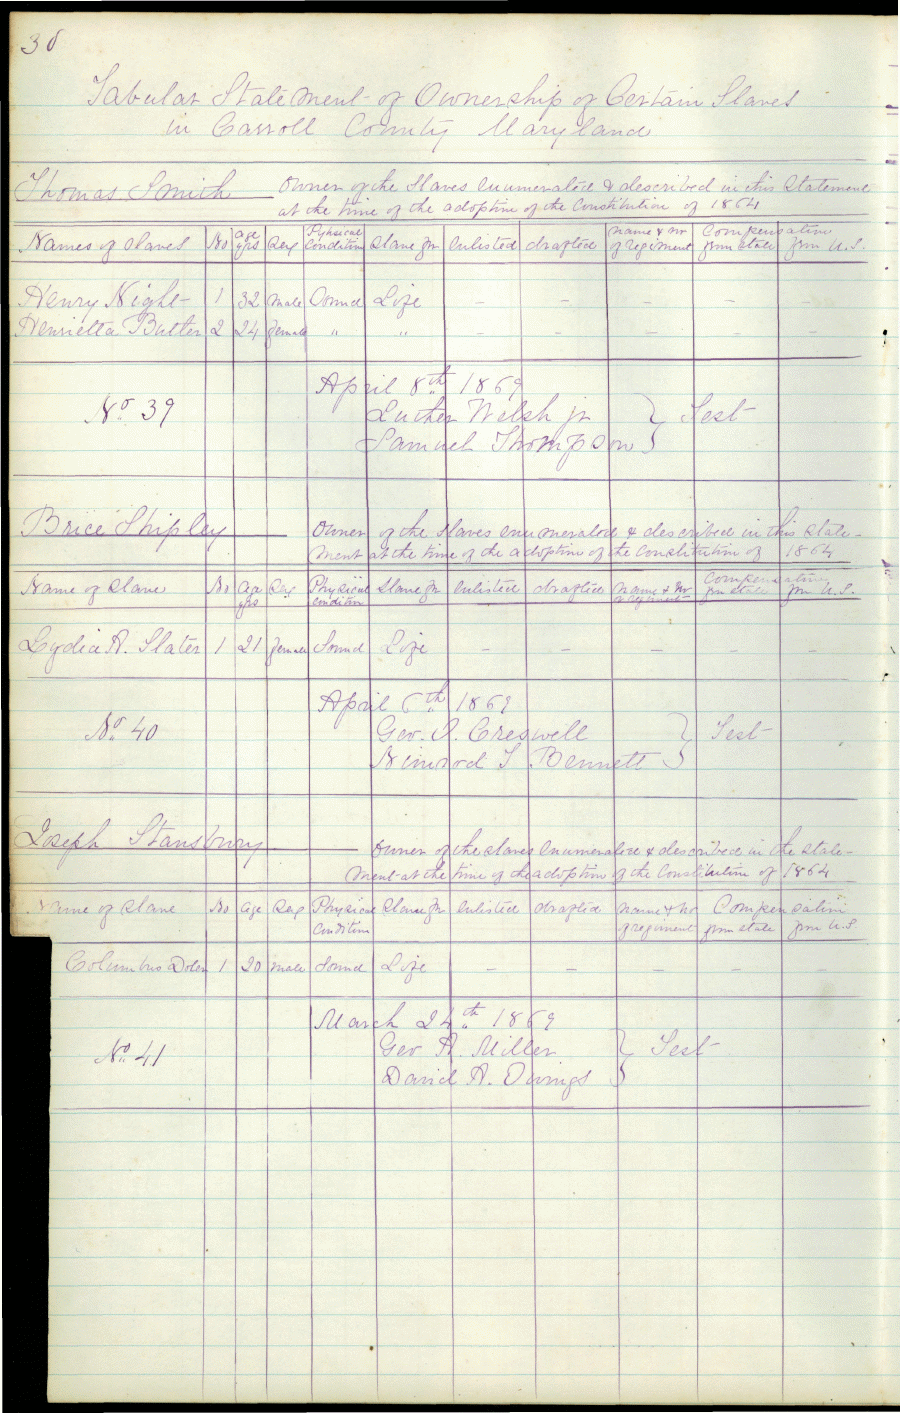 38
Tabular Statement of Ownership of Certain Slaves
in Carroll County Maryland
Thomas Smith Owner of the Slaves enumerated & described in this Statement
at the time of the adoption of the Constitution of 1864
Names of slaves No age yrs Sex Physical Condition Slave for enlisted drafted name & no of regiment Compensation from state from U.S.
Henry Night 1 32 male Sound Life – – – – –
Henrietta Butler 2 24 female " " – – – – –
April 8th 1869
No 39 Luther Welsh jr } Test
Samuel Thompson
Brice Shipley Owner of the slaves enumerated & described in this state-
ment at the time of the adoption of the Constitution of 1864
Name of slave No age yrs Sex Physical condition Slave for enlisted drafted name & No of regiment Compensation from state from U.S.
Lydia A. Slater 1 21 female Sound Life – – – – –
April 6th 1869
No 40 Geo. O. Creswell } Test
Nimrod T Bennett
Joseph Stansbury Owner of the slaves enumerated & described in the state-
ment at the time of the adoption of the Constitution of 1864
Name of slave No age Sex Physical Condition Slave for enlisted drafted name & no of regiment Compensation from state from U.S.
Columbus 1 20 male Sound Life – – – – –
March 24th 1869
No 41 Geo A. Miller } Test
David A. Owings